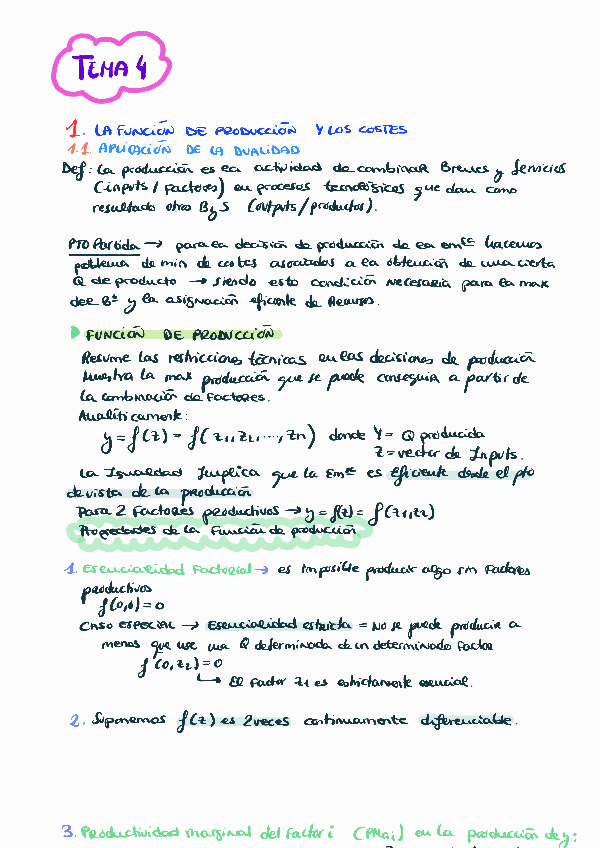 TEMA 4
1. LA FUNCIÓN DE PRODUCCIÓN Y LOS COSTES
1.1. APLICACIÓN DE LA DUALIDAD
Def: La producción es la actividad de combinar Bienes y Servicios
(inputs / Factores) en procesos tecnológicos que dan como
resultado otros ByS (outputs/productos).
Pto Partida → para la decisión de producción de la emse hacemos
problema de min de costes asociados a la obtención de una cierta
Q de producto → siendo esto condición necesaria para la max
del Bº y la asignación eficiente de Recursos.
FUNCIÓN DE PRODUCCIÓN
Resume las restricciones técnicas en las decisiones de producción
Muestra la max producción que se puede conseguir a partir de
la combinación de Factores.
Analíticamente:
y = f(z) = f(z1, z2, ..., zn) donde Y = Q producida
Z = vector de Inputs.
La Igualdad Implica que la Emse es Eficiente desde el pto
de vista de la producción
Para 2 Factores productivos → y = f(z) = f(z1, z2)
Propiedades de la Función de producción
1. Esencialidad Factorial → es imposible producir algo sin Factores
productivos
f(0,0) = 0
CASO ESPECIAL → Esencialidad estricta = No se puede producir a
menos que use una Q determinada de un determinado Factor
f(0, z2) = 0
El Factor z1 es estrictamente esencial.
2. Suponemos f(z) es 2 veces continuamente diferenciable.
3. Productividad marginal del Factor i (PMai) en la producción de y: